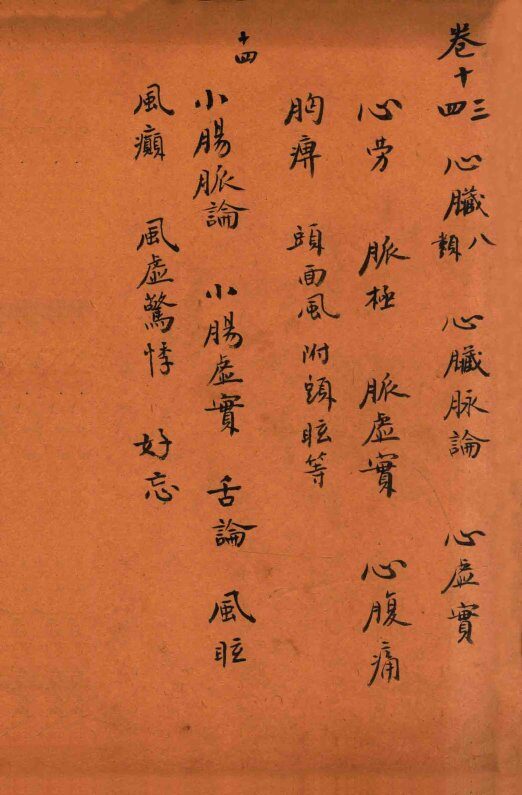 卷十三四 心臟八類 心臟脉論 心虛實
心劳 脈極 脈虛實 心腹痛
胸痹 頭面風附頭眩等
十四
小腸脈論 小腸虛實 舌論 風眩
風癲 風虛驚悸 好忘